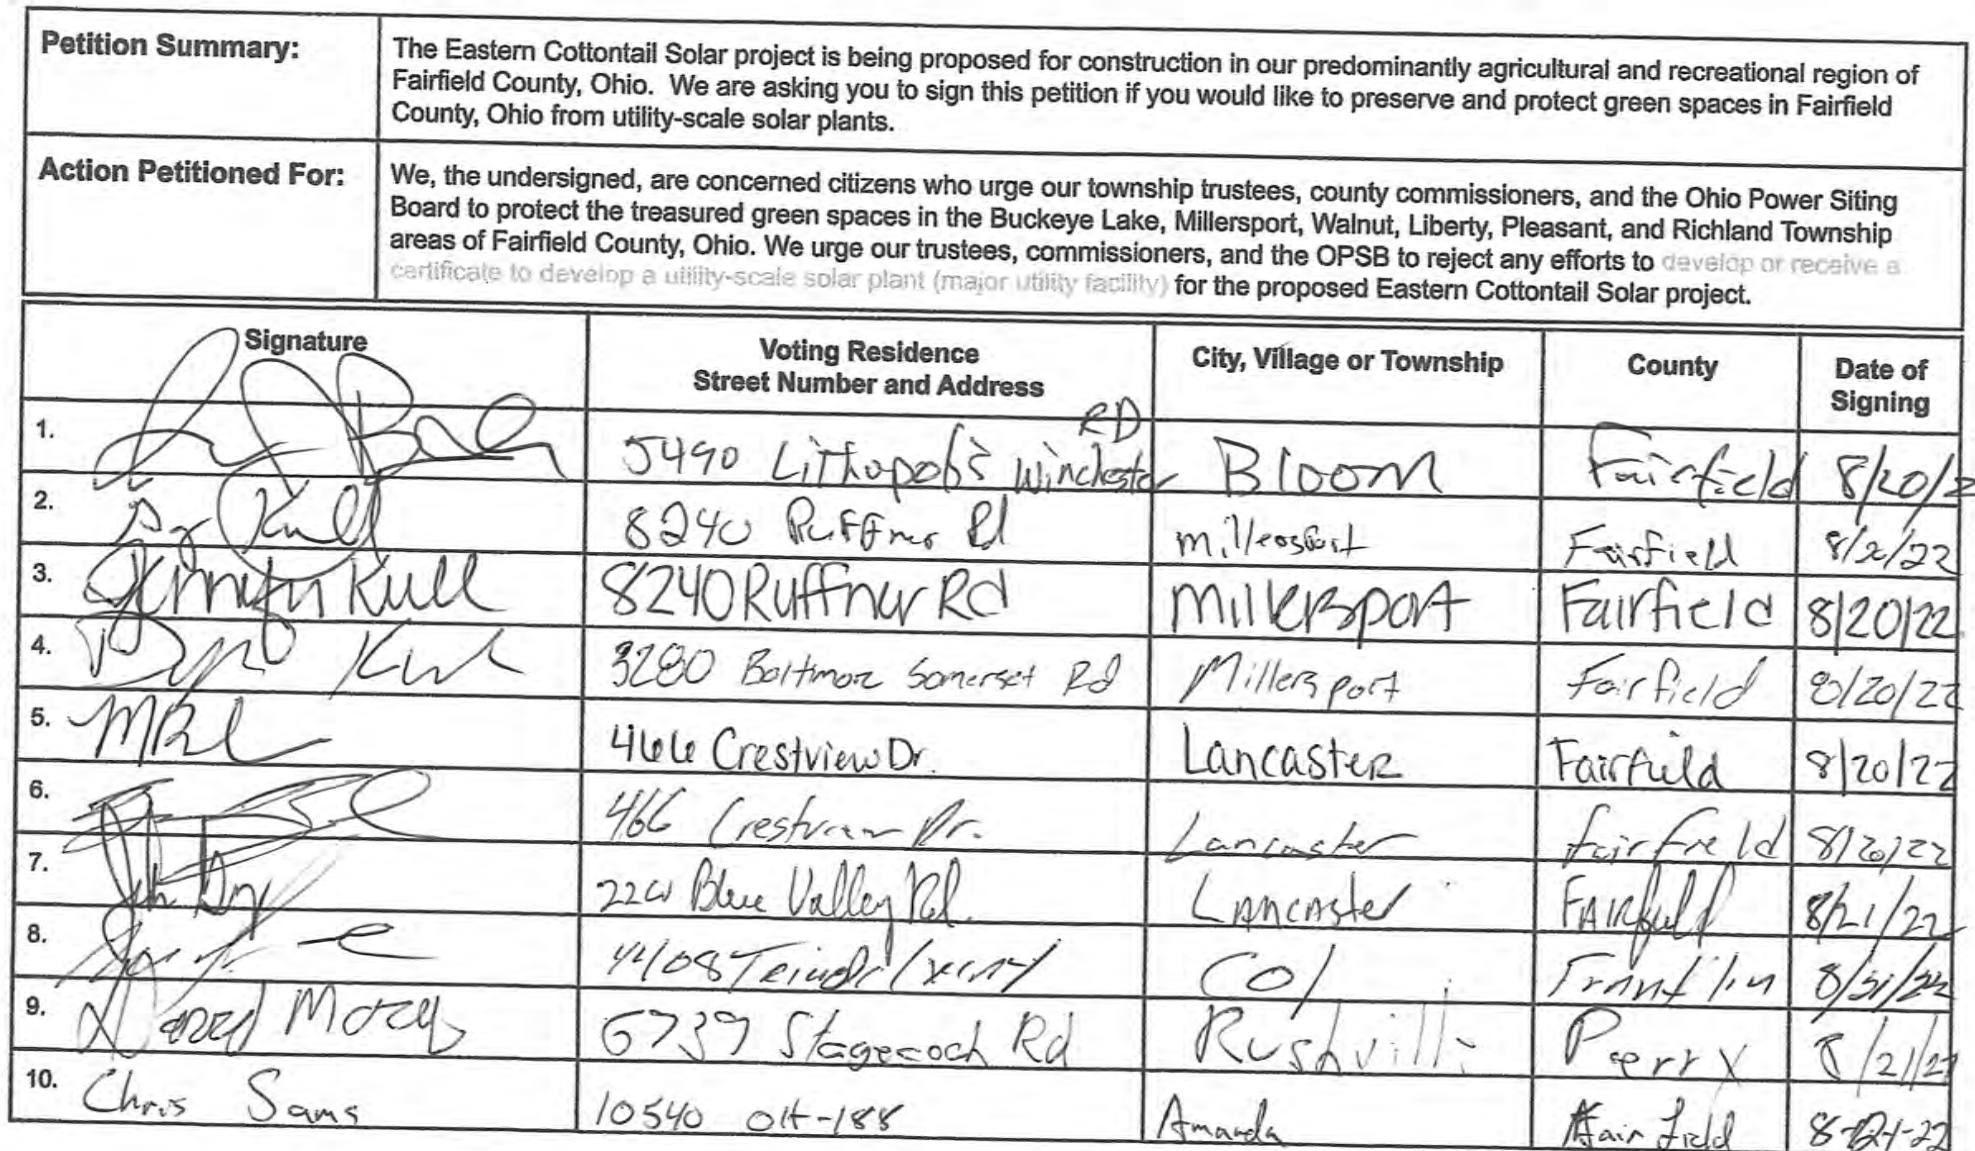 Petition Summary:
The Eastern Cottontail Solar project is being proposed for construction in our predominantly agricultural and recreational region of
Fairfield County, Ohio. We are asking you to sign this petition if you would like to preserve and protect green spaces in Fairfield
County, Ohio from utility-scale solar plants.
Action Petitioned For:
We, the undersigned, are concerned citizens who urge our township trustees, county commissioners, and the Ohio Power Siting
Board to protect the treasured green spaces in the Buckeye Lake, Millersport, Walnut, Liberty, Pleasant, and Richland Township
areas of Fairfield County, Ohio. We urge our trustees, commissioners, and the OPSB to reject any efforts to develop or receive a
certificate to develop a utility-scale solar plant (major utility facility) for the proposed Eastern Cottontail Solar project.
Signature
Voting Residence
Street Number and Address
City, Village or Township
County
Date of
Signing
1. 5490 Lithopolis Winchester RD Bloom Fairfield 8/20/2
2. Kull 8240 Ruffner Rd Millersport Fairfield
3. Jennifer Kull 8240 Ruffner Rd Millersport Fairfield 8/20/22
4. 3280 Baltimore Somerset Rd Millersport Fairfield 8/20/22
5. 466 Crestview Dr. Lancaster Fairfield 8/20/22
6. 466 Crestview Dr. Lancaster fairfield 8/20/22
7. Blue Valley Rd. Lancaster Fairfield 8/21/22
8. 4408 Col Franklin
9. 6739 Stagecoach Rd Rushville Perry 8/21/22
10. Chris Sams 10540 OH-188 Amanda Fairfield 8-21-22